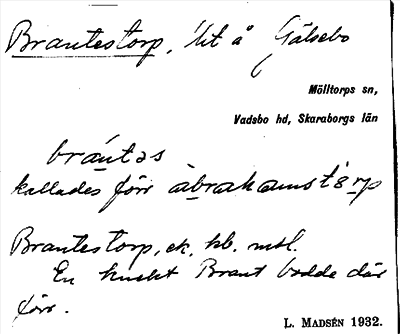 Brantestorp, lit å Gälsebo
Mölltorps sn,
Vadsbo hd, Skaraborgs län
brántəs
kallades förr àbrahamstȯrp
Brantestorp, ek. kb. msl.
En knekt Brant bodde där
förr.
L. MADSÉN 1932.